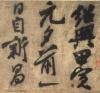 紹興甲寅
元夕前一
日自新昌